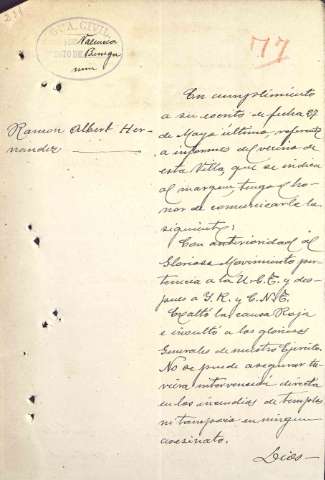 211
GUA. CIVIL
Valencia
PUESTO DE Buñol
num
77
En cumplimiento
a su escrito de fecha 27
de Mayo último, referente
a informes del vecino de
esta Villa que se indica
al margen, tengo el ho-
nor de comunicarle lo
siguiente:
Ramon Albert Her-
nandez
Con anterioridad al
Glorioso Movimiento per-
tenecia a la U.G.T. y des-
pues a I.R. y C.N.T.
Exaltó la causa Roja
e insultó a los gloriosos
Generales de nuestro Ejercito.
No se puede asegurar tu-
viera intervención directa
en los incendios de templos
ni tampoco en ningun
asesinato.
Dios